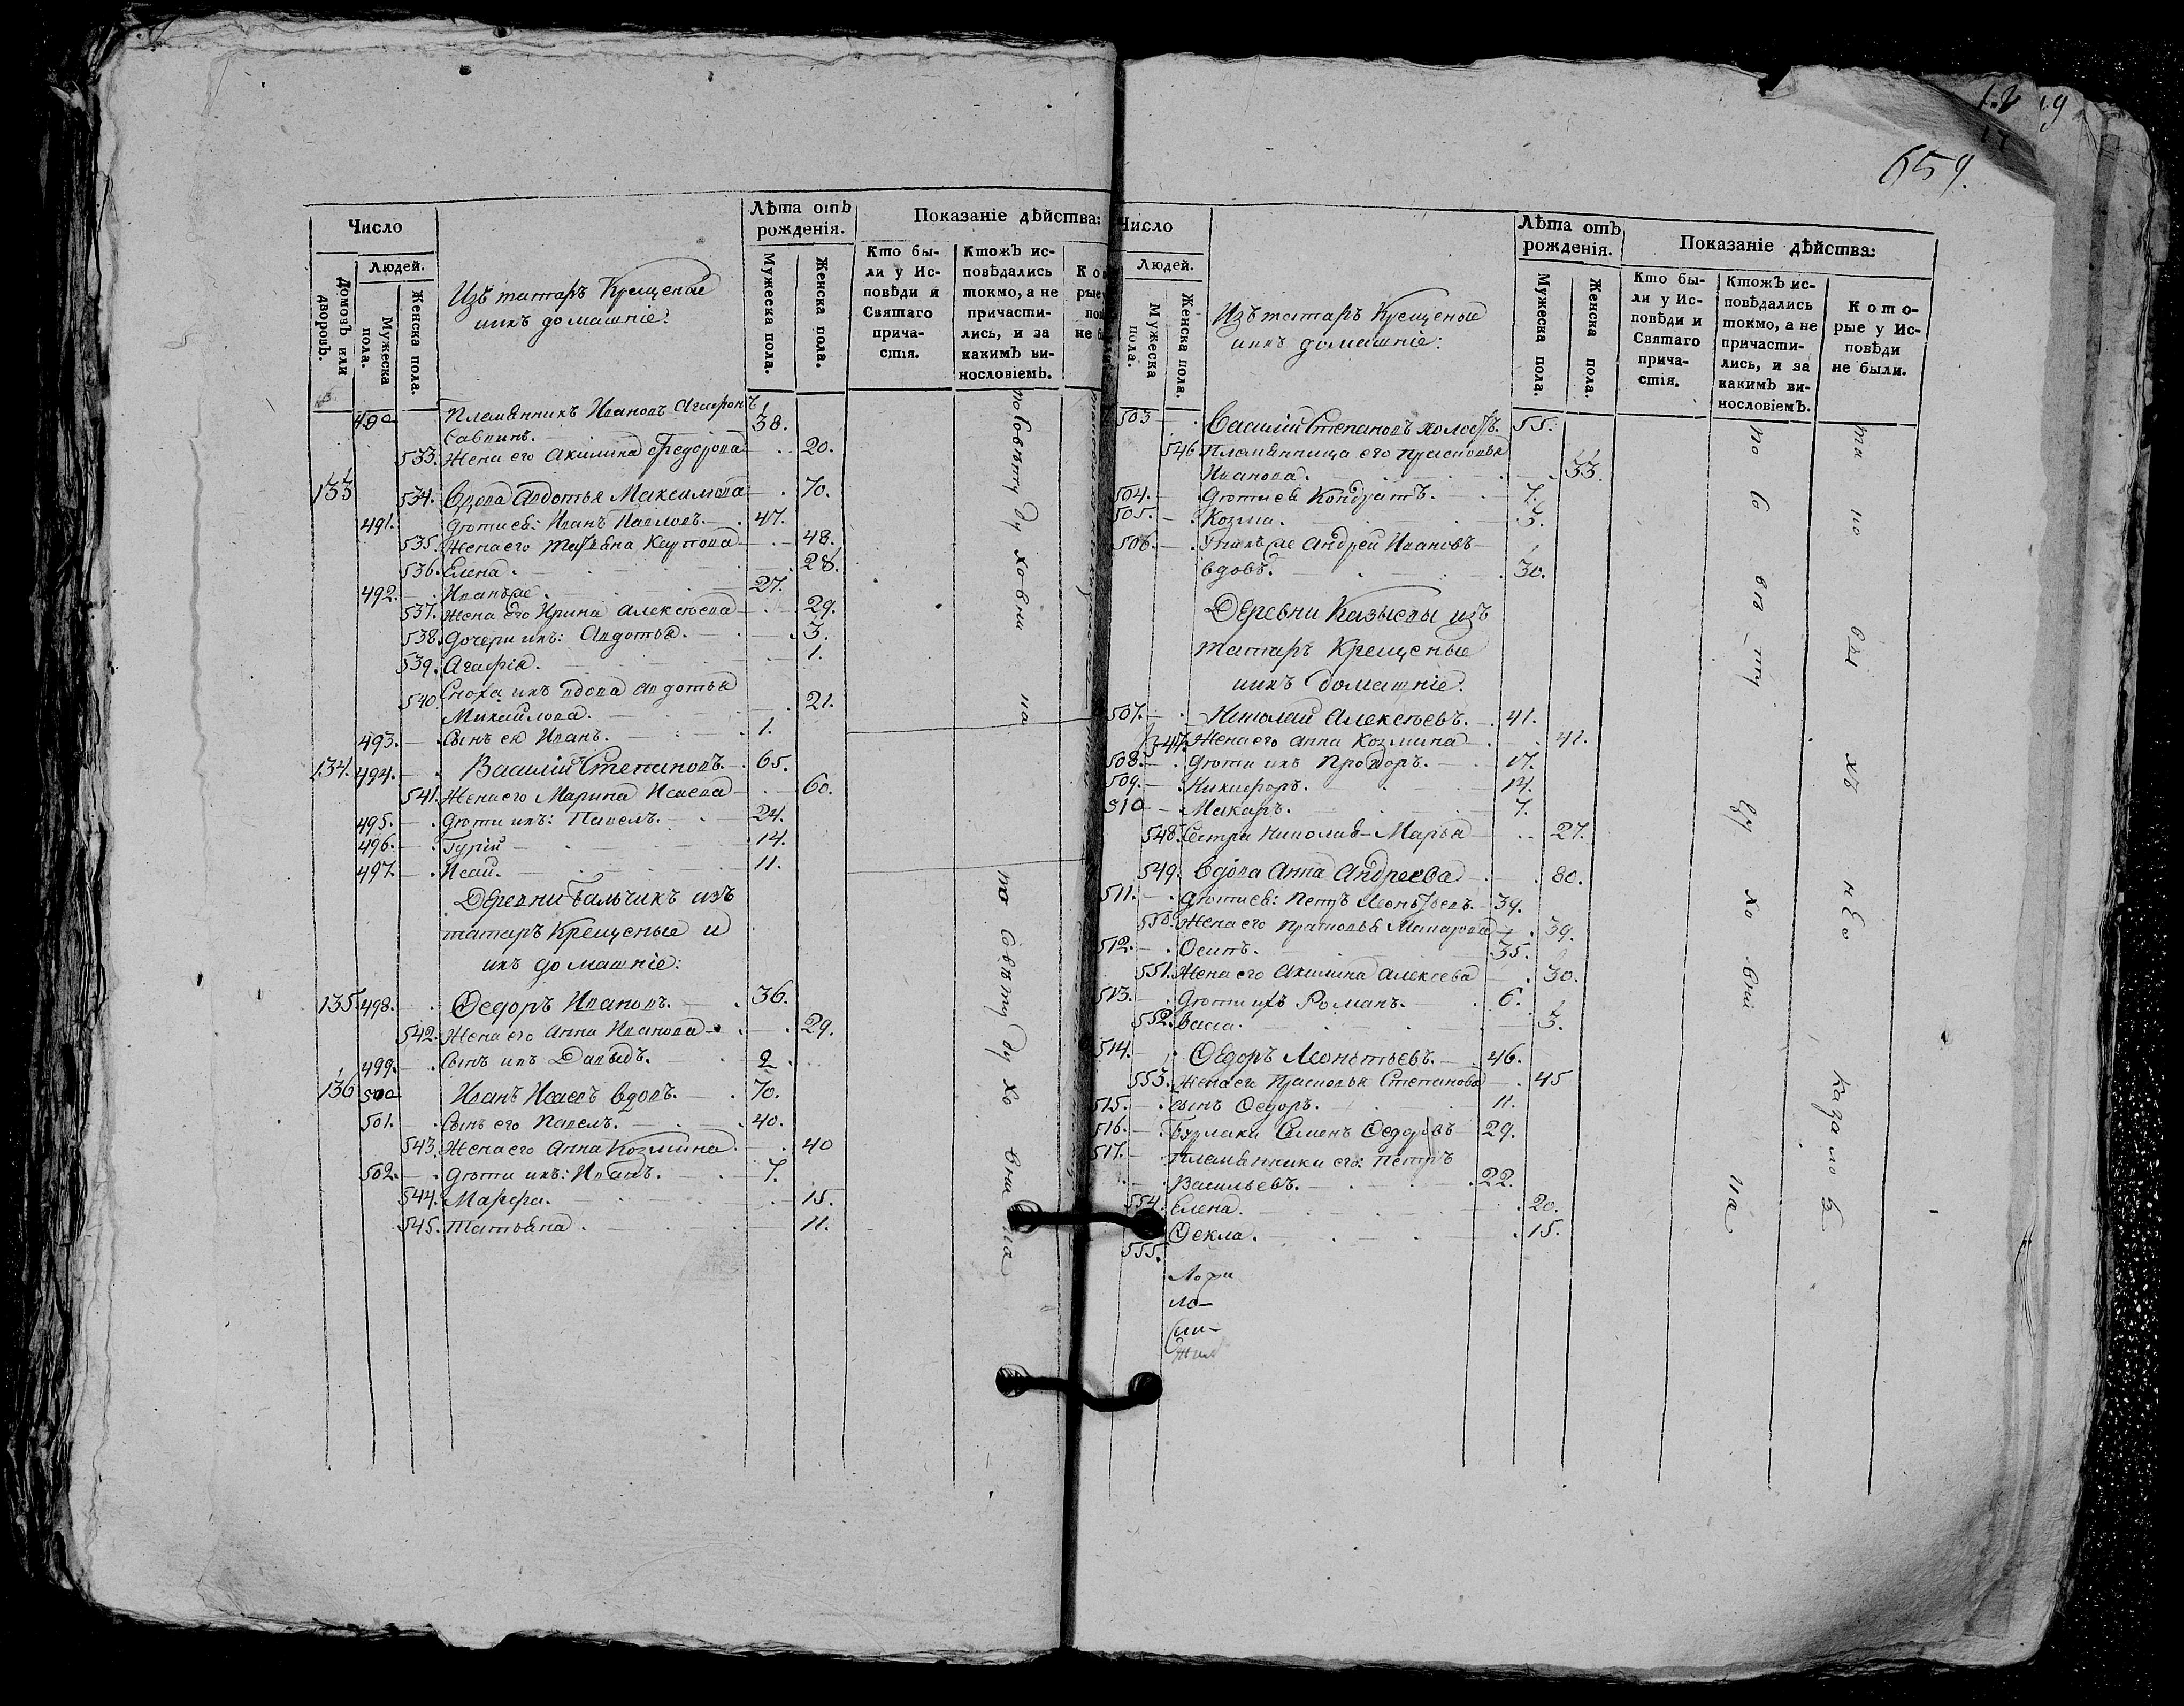 Число
Людей.
Домовъ или дворовъ.
Мужеска пола.
Женска пола.
Изъ татаръ Крещеные
ихъ домашніе:
Лѣта отъ рожденія.
Мужеска пола.
Женска пола.
Показаніе дѣйства:
Кто были у Исповѣди и Святаго причастія.
Ктожъ исповѣдались токмо, а не причастились, и за какимъ винословіемъ.
Племянникъ Ивановъ Агафонъ
490 Саввинъ. 38.
533. Жена его Акилина Федорова 20.
133 534. Вдова Авдотья Максимова 70.
491. Дѣти ея: Иванъ Павловъ. 47.
535. Жена его Татьяна Карпова 48.
536. Елена. 28.
492. Иванъ же. 27.
537. Жена его Ирина Алексѣева 29.
538. Дочери ихъ: Авдотья. 3.
539. Агафія. 1.
540. Сноха ихъ вдова Авдотья
Михайлова. 21.
493. Сынъ ея Иванъ. 1.
134. 494. Василій Степановъ. 65.
541. Жена его Марина Исаева 60.
495. Дѣти ихъ: Павелъ. 24.
496. Гурій 14.
497. Исай. 11.
Деревни Бальчикъ изъ
татаръ Крещеные и
ихъ домашніе:
135 498. Ѳедоръ Ивановъ. 36.
542. Жена его Анна Иванова 29.
499. Сынъ ихъ Давыдъ. 2
136 500 Иванъ Исаевъ вдовъ. 70.
501. Сынъ его Павелъ. 40.
543. Жена его Анна Козмина. 40
502. Дѣти ихъ: Иванъ. 7.
544. Марфа. 15.
545. Татьяна. 11.
по совѣту духовника
по совѣту духовника
659.
Число
Людей.
Мужеска пола.
Женска пола.
Изъ татаръ Крещеные
ихъ домашніе:
Лѣта отъ рожденія.
Мужеска пола.
Женска пола.
Показаніе дѣйства:
Кто были у Исповѣди и Святаго причастія.
Ктожъ исповѣдались токмо, а не причастились, и за какимъ винословіемъ.
Которые у Исповѣди не были.
503 Василій Степановъ холостъ. 55.
546. Племянница его Прасковья
Иванова. 33.
504. Дѣти ея Кондратъ. 7.
505. Козма. 3.
506. Андрей Ивановъ
вдовъ. 30.
Деревни Казыевы изъ
татаръ Крещеные
ихъ домашніе:
507. Николай Алексѣевъ. 41.
547. Жена его Анна Козмина 41.
508. Дѣти ихъ Прохоръ. 17.
509. Никифоръ. 14.
510 Макаръ. 7.
548. Сестра Николая Марья 27.
549. Вдова Анна Андреева 80.
511. Дѣти ея: Петръ Леонтьевъ. 39.
550. Жена его Прасковья Макарова 39.
512. Осипъ. 35.
551. Жена его Акилина Алексѣева 30.
513. Дѣти ихъ Романъ. 6.
552. Васса. 3.
514. Ѳедоръ Леонтьевъ. 46.
553. Жена его Прасковья Степанова 45
515. Сынъ Ѳедоръ. 11.
516. Бурлаки Семенъ Ѳедоровъ 29.
517. Племянники его: Петръ
Васильевъ. 22.
554. Елена. 20.
555. Ѳекла. 15.
по совѣту духовника